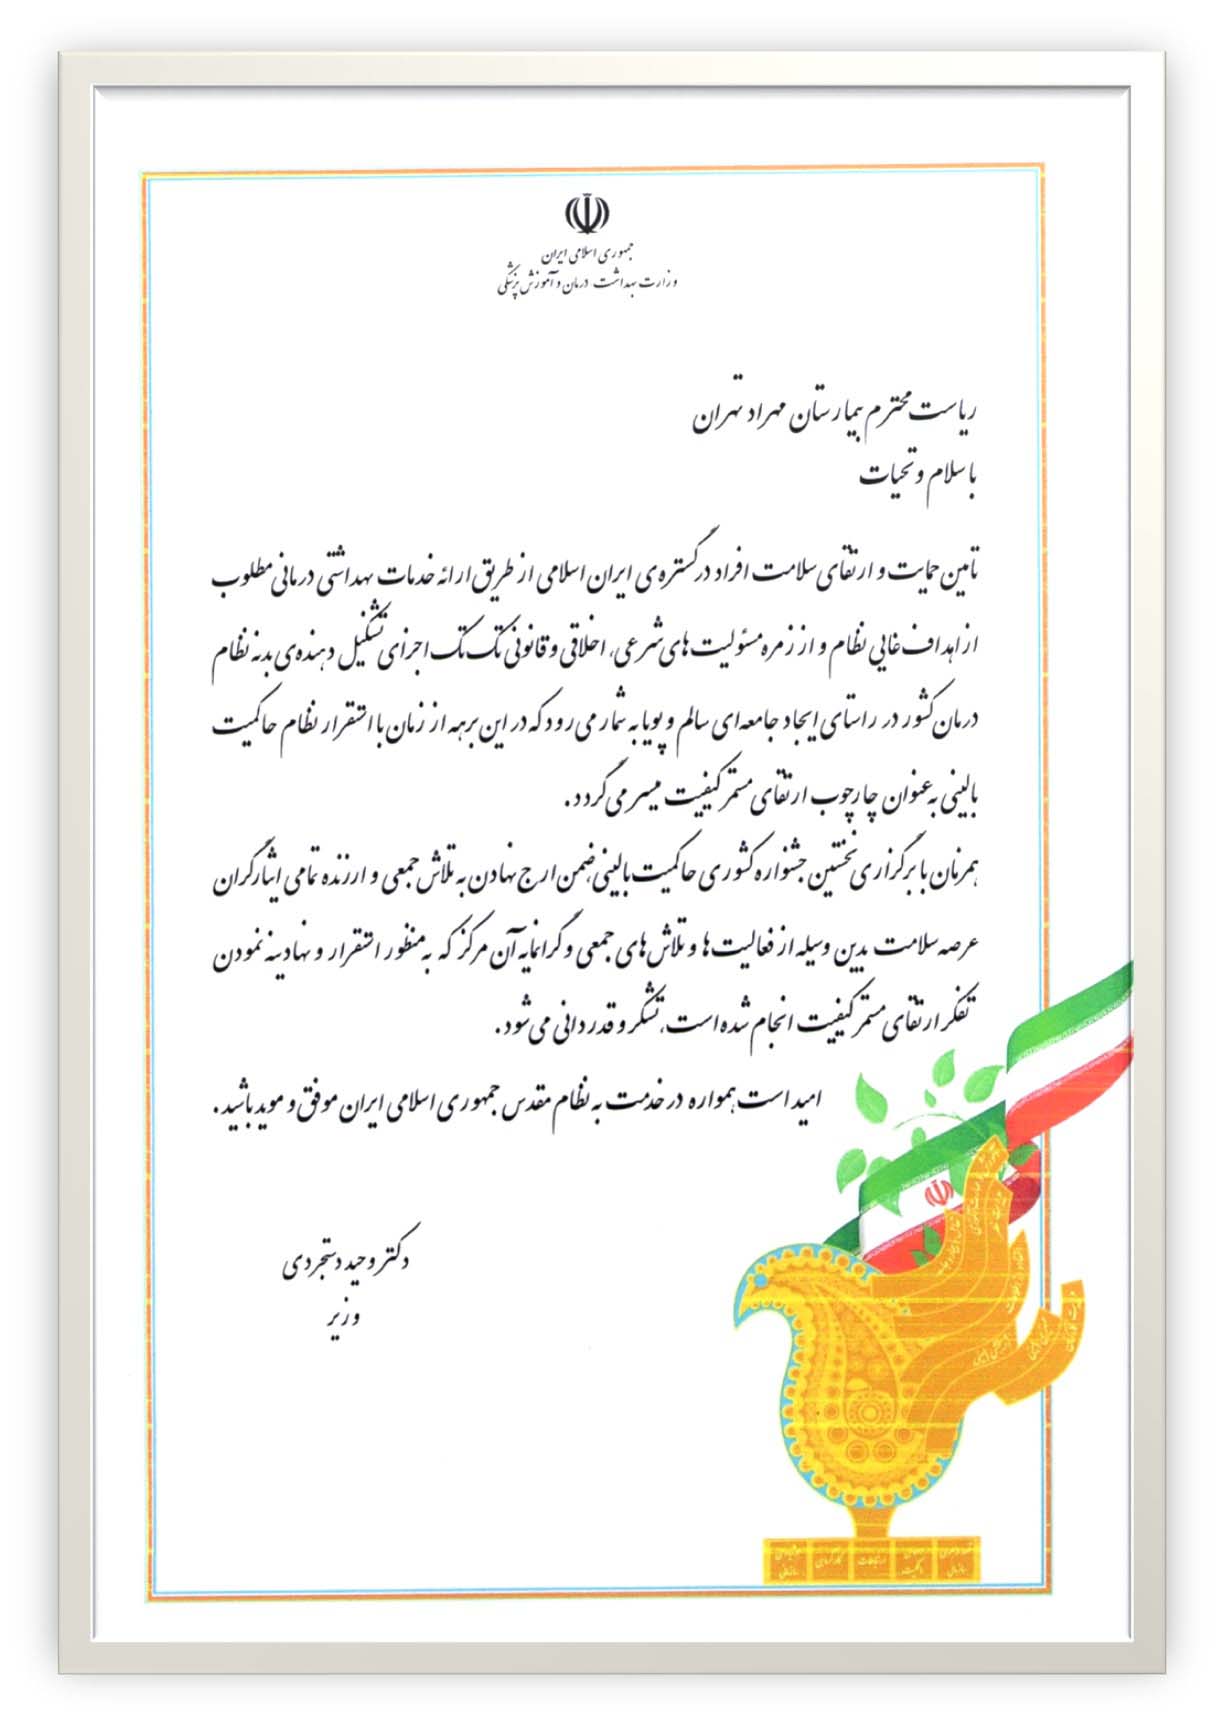 جمهوری اسلامی ایران
وزارت بهداشت درمان و آموزش پزشکی
ریاست محترم بیمارستان مهراد تهران
با سلام و تحیات
تامین حمایت و ارتقای سلامت افراد در گستره‌ی ایران اسلامی از طریق ارائه خدمات بهداشتی درمانی مطلوب
از اهداف غایی نظام و از زمره مسئولیت های شرعی، اخلاقی و قانونی تک تک اجزای تشکیل دهنده‌ی بدنه نظام
درمان کشور در راستای ایجاد جامعه‌ای سالم و پویا به شمار می رود که در این برهه از زمان با استقرار نظام حاکمیت
بالینی به عنوان چارچوب ارتقای مستمر کیفیت میسر می گردد.
همزمان با برگزاری نخستین جشنواره کشوری حاکمیت بالینی ضمن ارج نهادن به تلاش جمعی و ارزنده تمامی ایثارگران
عرصه سلامت بدین وسیله از فعالیت ها و تلاش های جمعی و گرانمایه آن مرکز که به منظور استقرار و نهادینه نمودن
تفکر ارتقای مستمر کیفیت انجام شده است، تشکر و قدردانی می شود.
امید است همواره در خدمت به نظام مقدس جمهوری اسلامی ایران موفق و موید باشید.
دکتر وحید دستجردی
وزیر